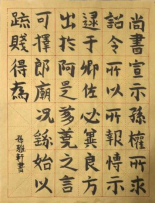 尚書宣示孫權所求
詔令所以所報博示
逮于卿佐必冀良方
出於阿是芻蕘之言
可擇郎廟況繇始以
疏賤得為